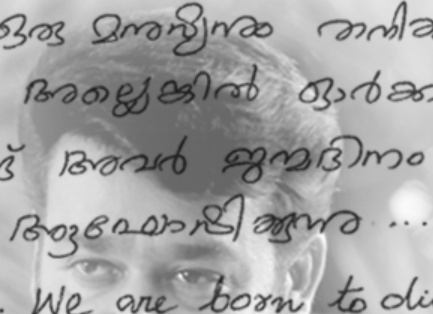 ഒരു മനുഷ്യനും
അല്ലെങ്കിൽ ഓർക്ക
അവർ ജന്മദിനം
ആഘോഷിക്കുന്നു ...
We are born to die